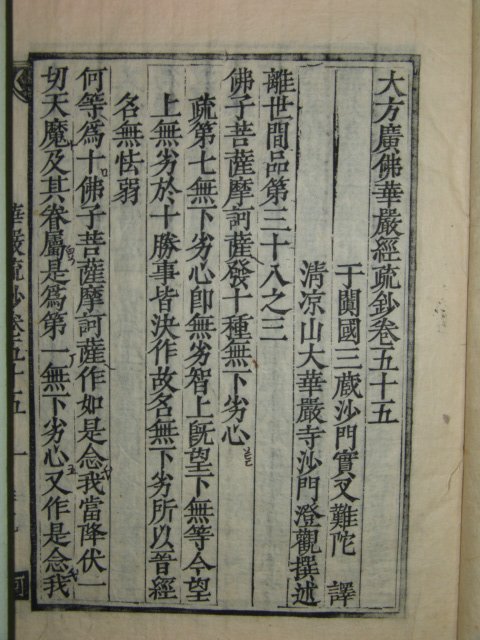 大方廣佛華嚴經疏鈔卷五十五
于闐國三藏沙門實叉難陀 譯
清涼山大華嚴寺沙門澄觀撰述
離世間品第三十八之三
佛子菩薩摩訶薩發十種無下劣心
疏第七無下劣心即無劣智上旣望下無等今望
上無劣於十勝事皆決作故名無下劣所以晉經
名無怯弱
何等爲十佛子菩薩摩訶薩作如是念我當降伏一
切天魔及其眷屬是爲第一無下劣心又作是念我
華嚴疏鈔卷五十五